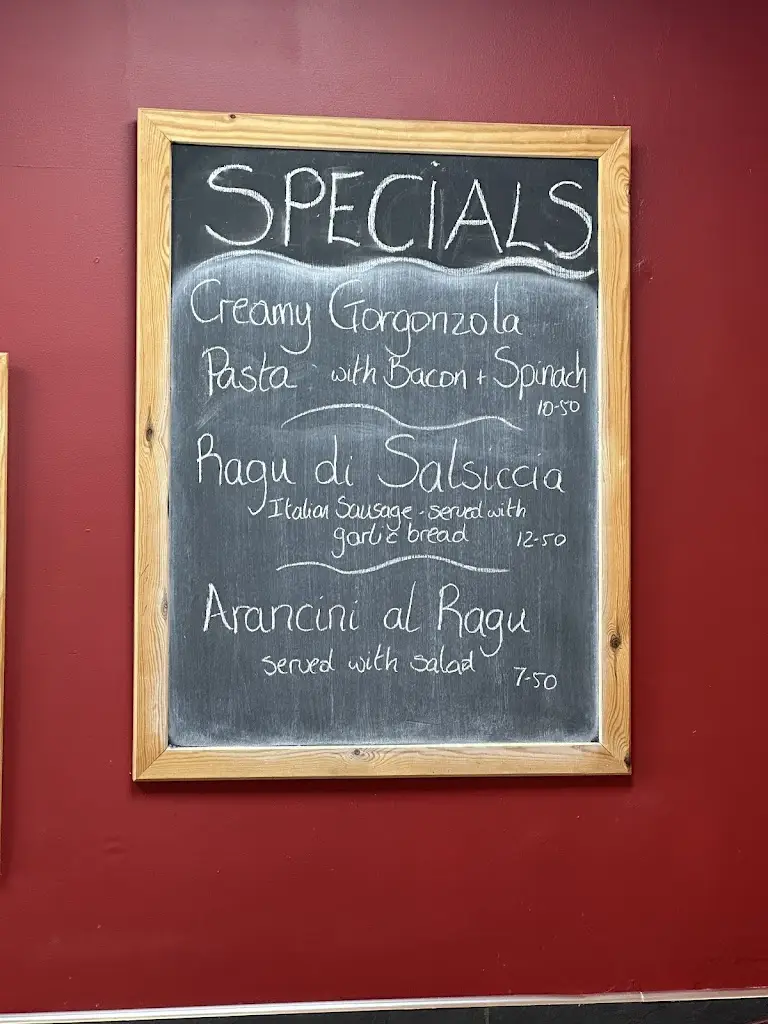 SPECIALS
Creamy Gorgonzola
Pasta with Bacon + Spinach
10-50
Ragu di Salsiccia
Italian Sausage - served with
garlic bread 12-50
Arancini al Ragu
served with salad 7-50